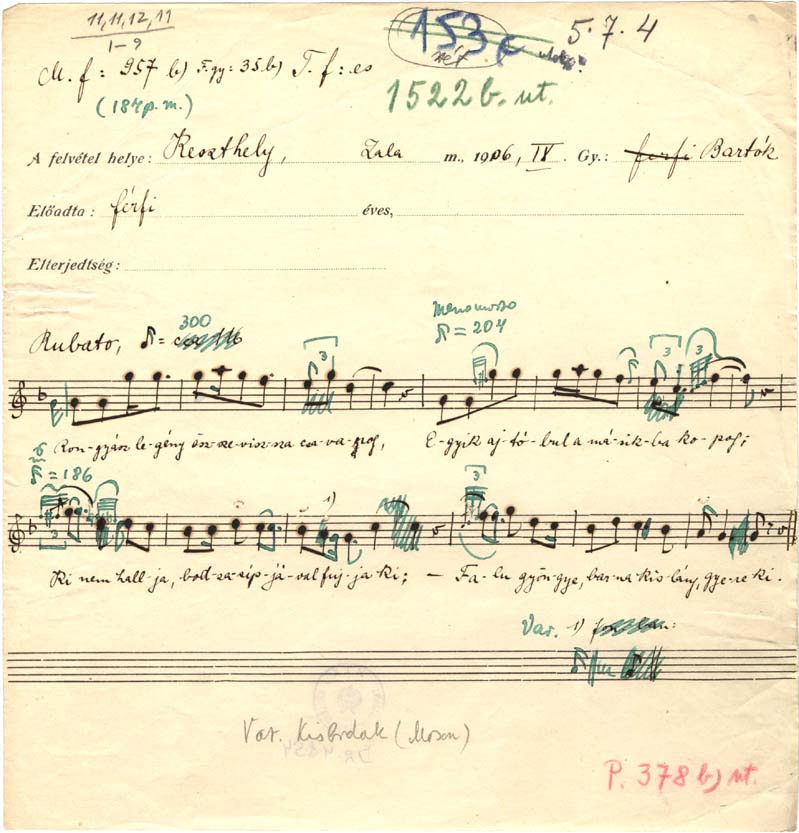 11, 11, 12, 11
1–9
153
5. 7. 4
M. f: 957 b) F. gy: 35 b) T. f: es
(184 p. m.)
1522 b. ut.
A felvétel helye: Keszthely, Zala m., 1906, IX. Gy.: férfi Bartók
Előadta: férfi éves,
Elterjedtség:
Rubato, ♪ = 300
Meno mosso
♪ = 204
3 3 3
Ron-gyász le-gény ösz-sze-visz-sza csa-va-rog, E-gyik aj-tó-bul a má-sik-ba ko-pog;
♪ = 186
3 1) 3
Ki nem hall-ja, bod-za-síp-já-val fúj-ja ki; – Fa-lu gyön-gye, bar-na kis-lány, gye-re ki.
Var. 1)
Var. (Moson)
P. 378 b) ut.